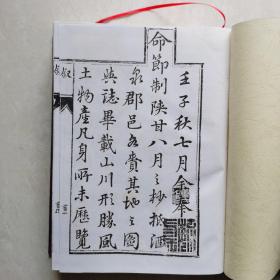 壬子秋七月余奉
命節制陝甘八月之杪抵酒
泉郡邑各賫其地之圖
與誌畢載山川形勝風
土物產凡身所未歷覽